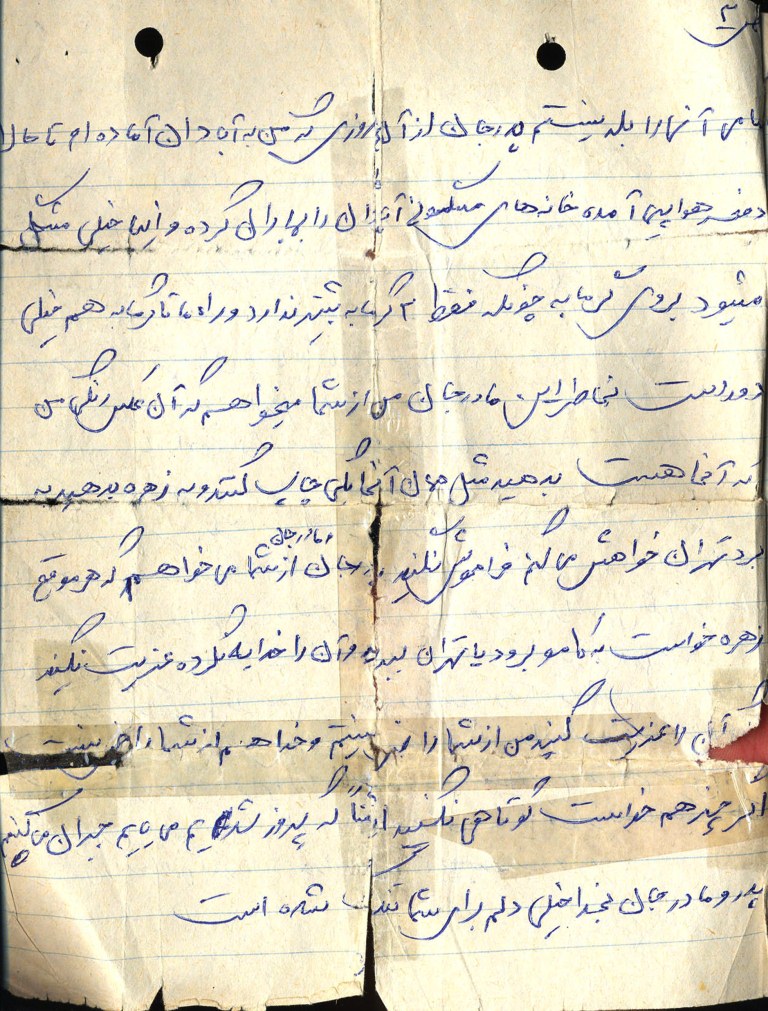 ص ۳
نامی آنها را بلد نیستم پدر جان از آن روزی که من به آبادان آماده ام تا حال
دفعه هواپیما آمده خانه های مسکونی آبادان را بمباران کرده و اینجا خیلی مشکل
میشود بروی گرمابه چونکه فقط ۲ گرمابه بیشتر ندارد و راه ما تا گرمابه هم خیلی
دور است بخاطر این مادر جان من از شما میخواهم که آن عکس رنگی من
که آنجا هست بدهید مثل همان آنجا یکی چاپ کنند و به زهره بدهید به
برد تهران خواهش می کنم فراموش نکنید پدر جان و مادر جان از شما می خواهم که هر موقع
زهره خواست به کامو برود یا تهران ببرید و آن را خدایه نکرده عزیت نکنید
اگر آن را عزیت کنید من از شما راضی نیستم و خدا هم از شما راضی نیست
اگر چیز هم خواست کوتاهی نکنید که پیروز شدیم می یایم جبران می کنیم
پدر و مادر جان بخدا خیلی دلم برای شما تنگ شده است